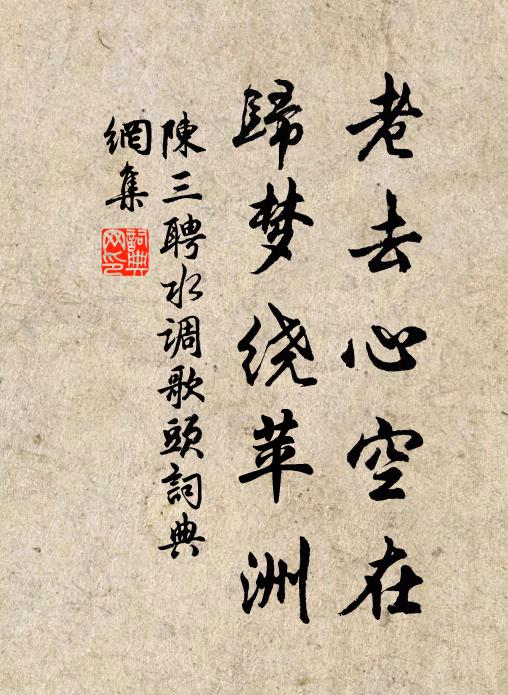 老去心空在
歸梦绕苹洲
陳三聘水调歌頭詞典
網集
詞典
网印